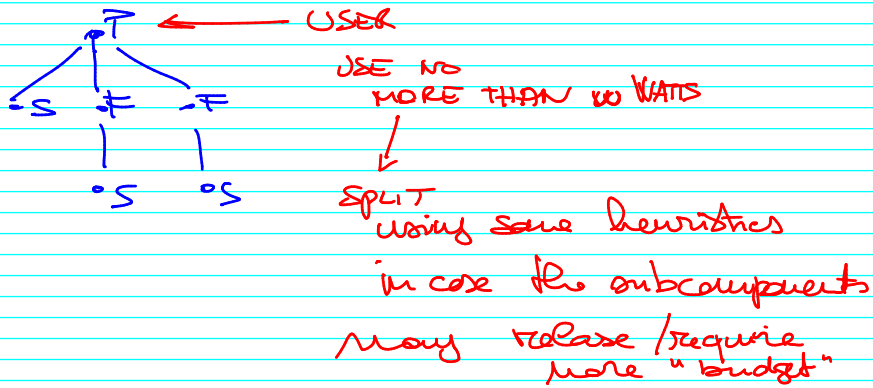 P USER
USE NO
MORE THAN W WATTS
S F F
S S
SPLIT
using some heuristics
in case the subcomponents
may release/require
more "budget"